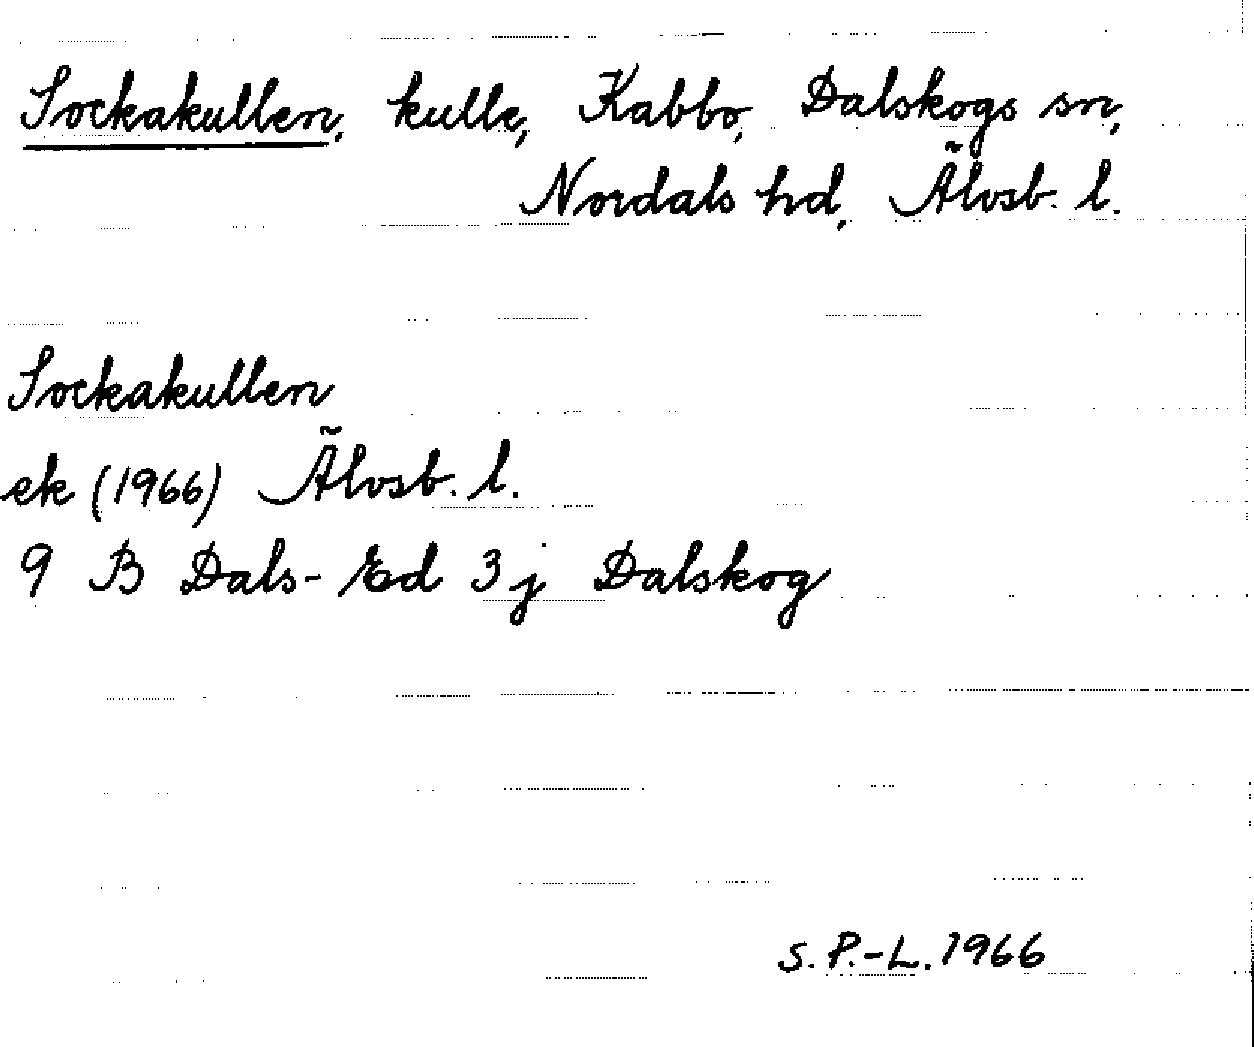 Sockakullen, kulle, Kabbo, Dalskogs sn,
Nordals hd, Älvsb. l.
Sockakullen
ek (1966) Älvsb. l.
9 B Dals-Ed 3 j Dalskog
S. P.-L. 1966